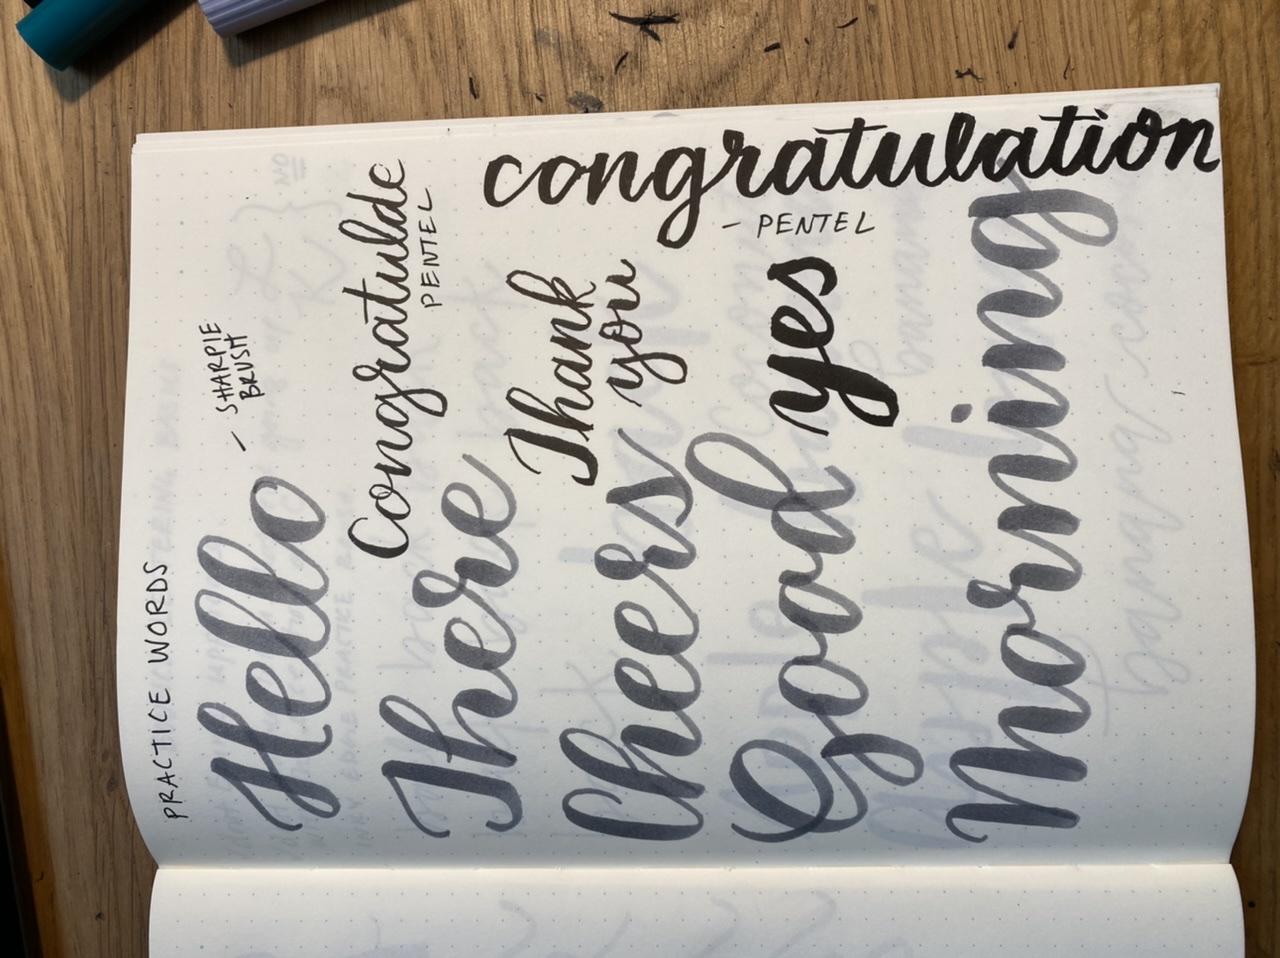 PRACTICE WORDS
Hello
- SHARPIE
BRUSH
There
Congratulde
PENTEL
Cheers
Thank
you
Good
yes
Morning
congratulation
- PENTEL